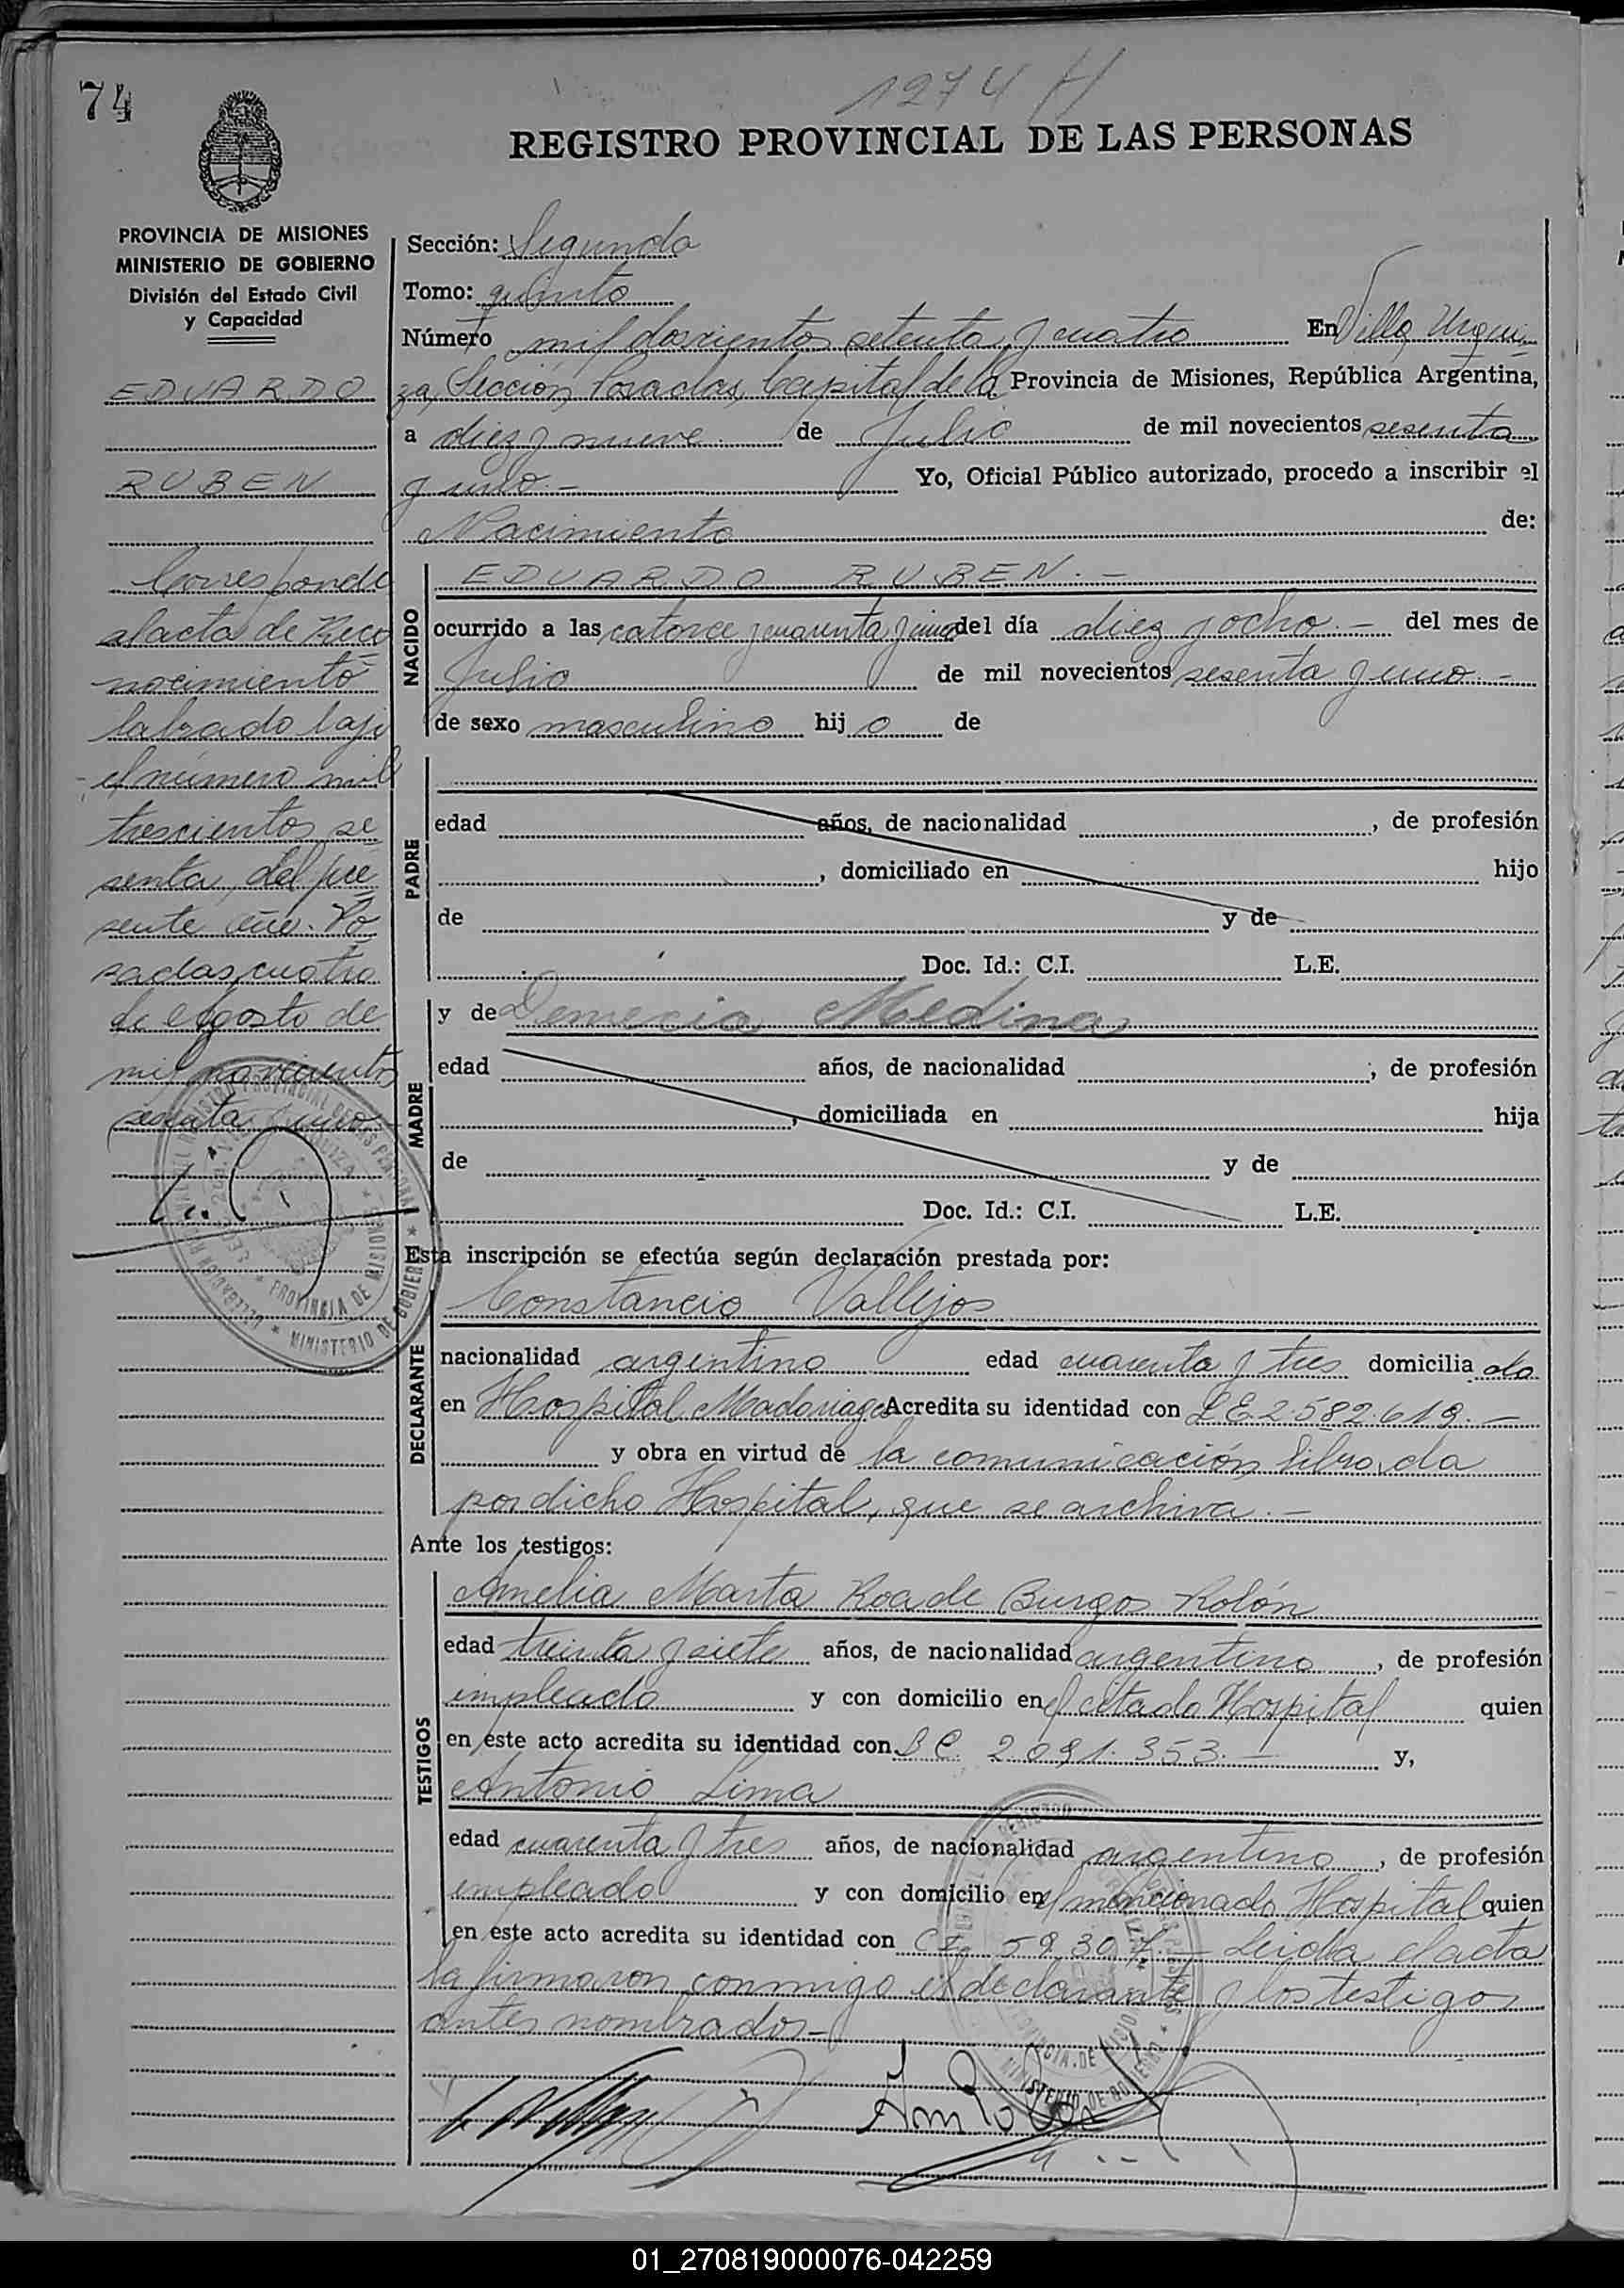 74
1274 H
REGISTRO PROVINCIAL DE LAS PERSONAS
PROVINCIA DE MISIONES
MINISTERIO DE GOBIERNO
División del Estado Civil
y Capacidad
EDUARDO
RUBEN
Corresponde
al acta de Reco
nocimiento
labrado bajo
el número mil
trescientos se
senta, del pre
sente año. Po
sadas, cuatro
de Agosto de
mil novecientos
sesenta y uno
Sección: Segunda
Tomo: quinto
Número mil doscientos setenta y cuatro En Villa Urqui
za, Sección Posadas, Capital de la Provincia de Misiones, República Argentina,
a diez y nueve de Julio de mil novecientos sesenta
y uno.- Yo, Oficial Público autorizado, procedo a inscribir el
Nacimiento de:
NACIDO
EDUARDO RUBEN.-
ocurrido a las catorce y cuarenta y cinco del día diez y ocho.- del mes de
Julio de mil novecientos sesenta y uno.-
de sexo masculino hijo de
PADRE
edad años, de nacionalidad , de profesión
, domiciliado en hijo
de y de
Doc. Id.: C.I. L.E.
MADRE
y de Demecia Medina
edad años, de nacionalidad , de profesión
, domiciliada en hija
de y de
Doc. Id.: C.I. L.E.
Esta inscripción se efectúa según declaración prestada por:
DECLARANTE
Constancio Vallejos
nacionalidad argentino edad cuarenta y tres domiciliado
en Hospital Madariaga Acredita su identidad con L.E. 2.582.619.-
y obra en virtud de la comunicación librada
por dicho Hospital, que se archiva.-
Ante los testigos:
TESTIGOS
Amelia Marta Roa de Burgos Rolón
edad treinta y siete años, de nacionalidad argentina, de profesión
empleada y con domicilio en el citado Hospital quien
en este acto acredita su identidad con L.C. 2.091.353.- y,
Antonio Lima
edad cuarenta y tres años, de nacionalidad argentino, de profesión
empleado y con domicilio en el mencionado Hospital quien
en este acto acredita su identidad con C.I. 59.307.- Leida el acta
la firmaron conmigo el declarante y los testigos
antes nombrados.-
01_270819000076-042259